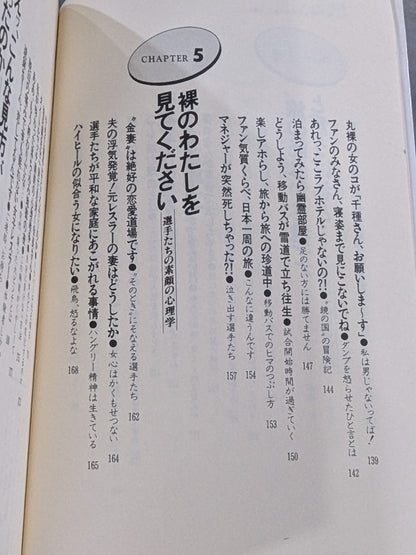 CHAPTER 5
裸のわたしを
見てください
選手たちの素顔の心理学
丸裸の女のコが、“千種さん、お願いしま〜す” ●私は男じゃないってば! 139
ファンのみなさん、寝姿まで見にこないでね ●ダンプを怒らせたひと言とは 142
あれっ、ここラブホテルじゃないの?! ●“鏡の国”の冒険記 144
泊まってみたら幽霊部屋 ●足のない方には勝てません 147
どうしよう、移動バスが雪道で立ち往生 ●試合開始時間が過ぎていく 150
楽しアホらし、旅から旅への珍道中 ●移動バスでのヒマのつぶし方 153
ファン気質くらべ、日本一周の旅 ●こんなに違うんです 154
マネジャーが突然死しちゃった?! ●泣き出す選手たち 157
“金妻”は絶好の恋愛道場です ●“そのとき”にそなえる選手たち 162
夫の浮気発覚!元レスラーの妻はどうしたか ●女心はかくもせつない 164
選手たちが平和な家庭にあこがれる事情 ●ハングリー精神は生きている 165
ハイヒールの似合う女になりたい ●飛鳥、怒るなよな 168